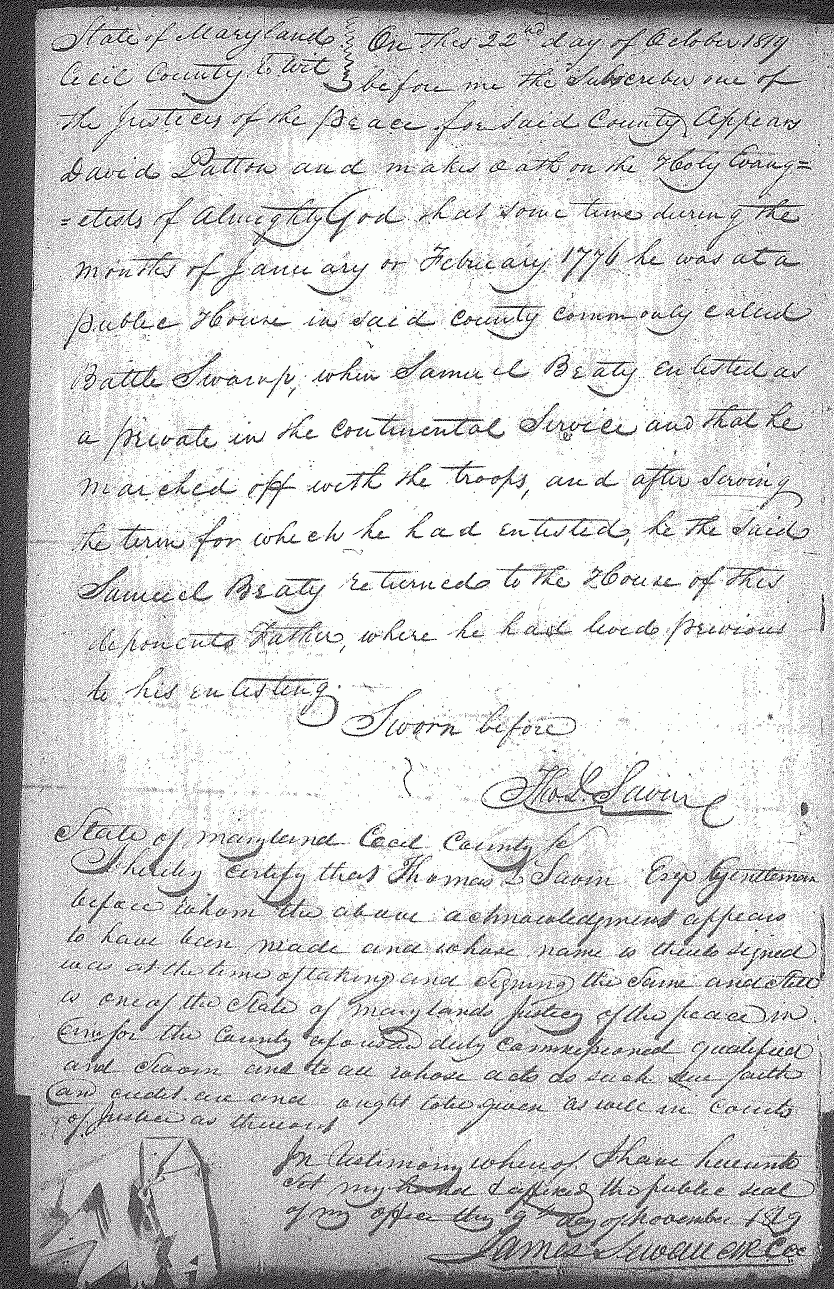 State of Maryland } On this 22nd day of October 1819
Cecil County to wit } before me the Subscriber one of
the Justices of the peace for said County Appears
David Patton and makes oath on the Holy Evang=
=elists of Almighty God that some time during the
months of January or February 1776 he was at a
public House in said county commonly called
Battle Swamp, when Samuel Beaty enlisted as
a private in the continental Service and that he
marched off with the troops, and after serving
the term for which he had enlisted, he the said
Samuel Beaty returned to the House of this
deponents Father, where he had lived previous
to his enlisting.
Sworn before
Tho. L. Savin
State of Maryland Cecil County
I hereby certify that Thomas L Savin Esqr Gentleman
before whom the above acknowledgment appears
to have been made and whose name is thereto signed
was at the time of taking and signing the same and still
is one of the State of Marylands Justices of the peace in
and for the County aforesaid duly commissioned qualified
and sworn and to all whose acts as such due faith
and credit are and ought to be given as well in Courts
of Justice as thereout
In Testimony whereof I have hereunto
set my hand & affixed the public seal
of my office this 9th day of November 1819
James Sewall Clk CC